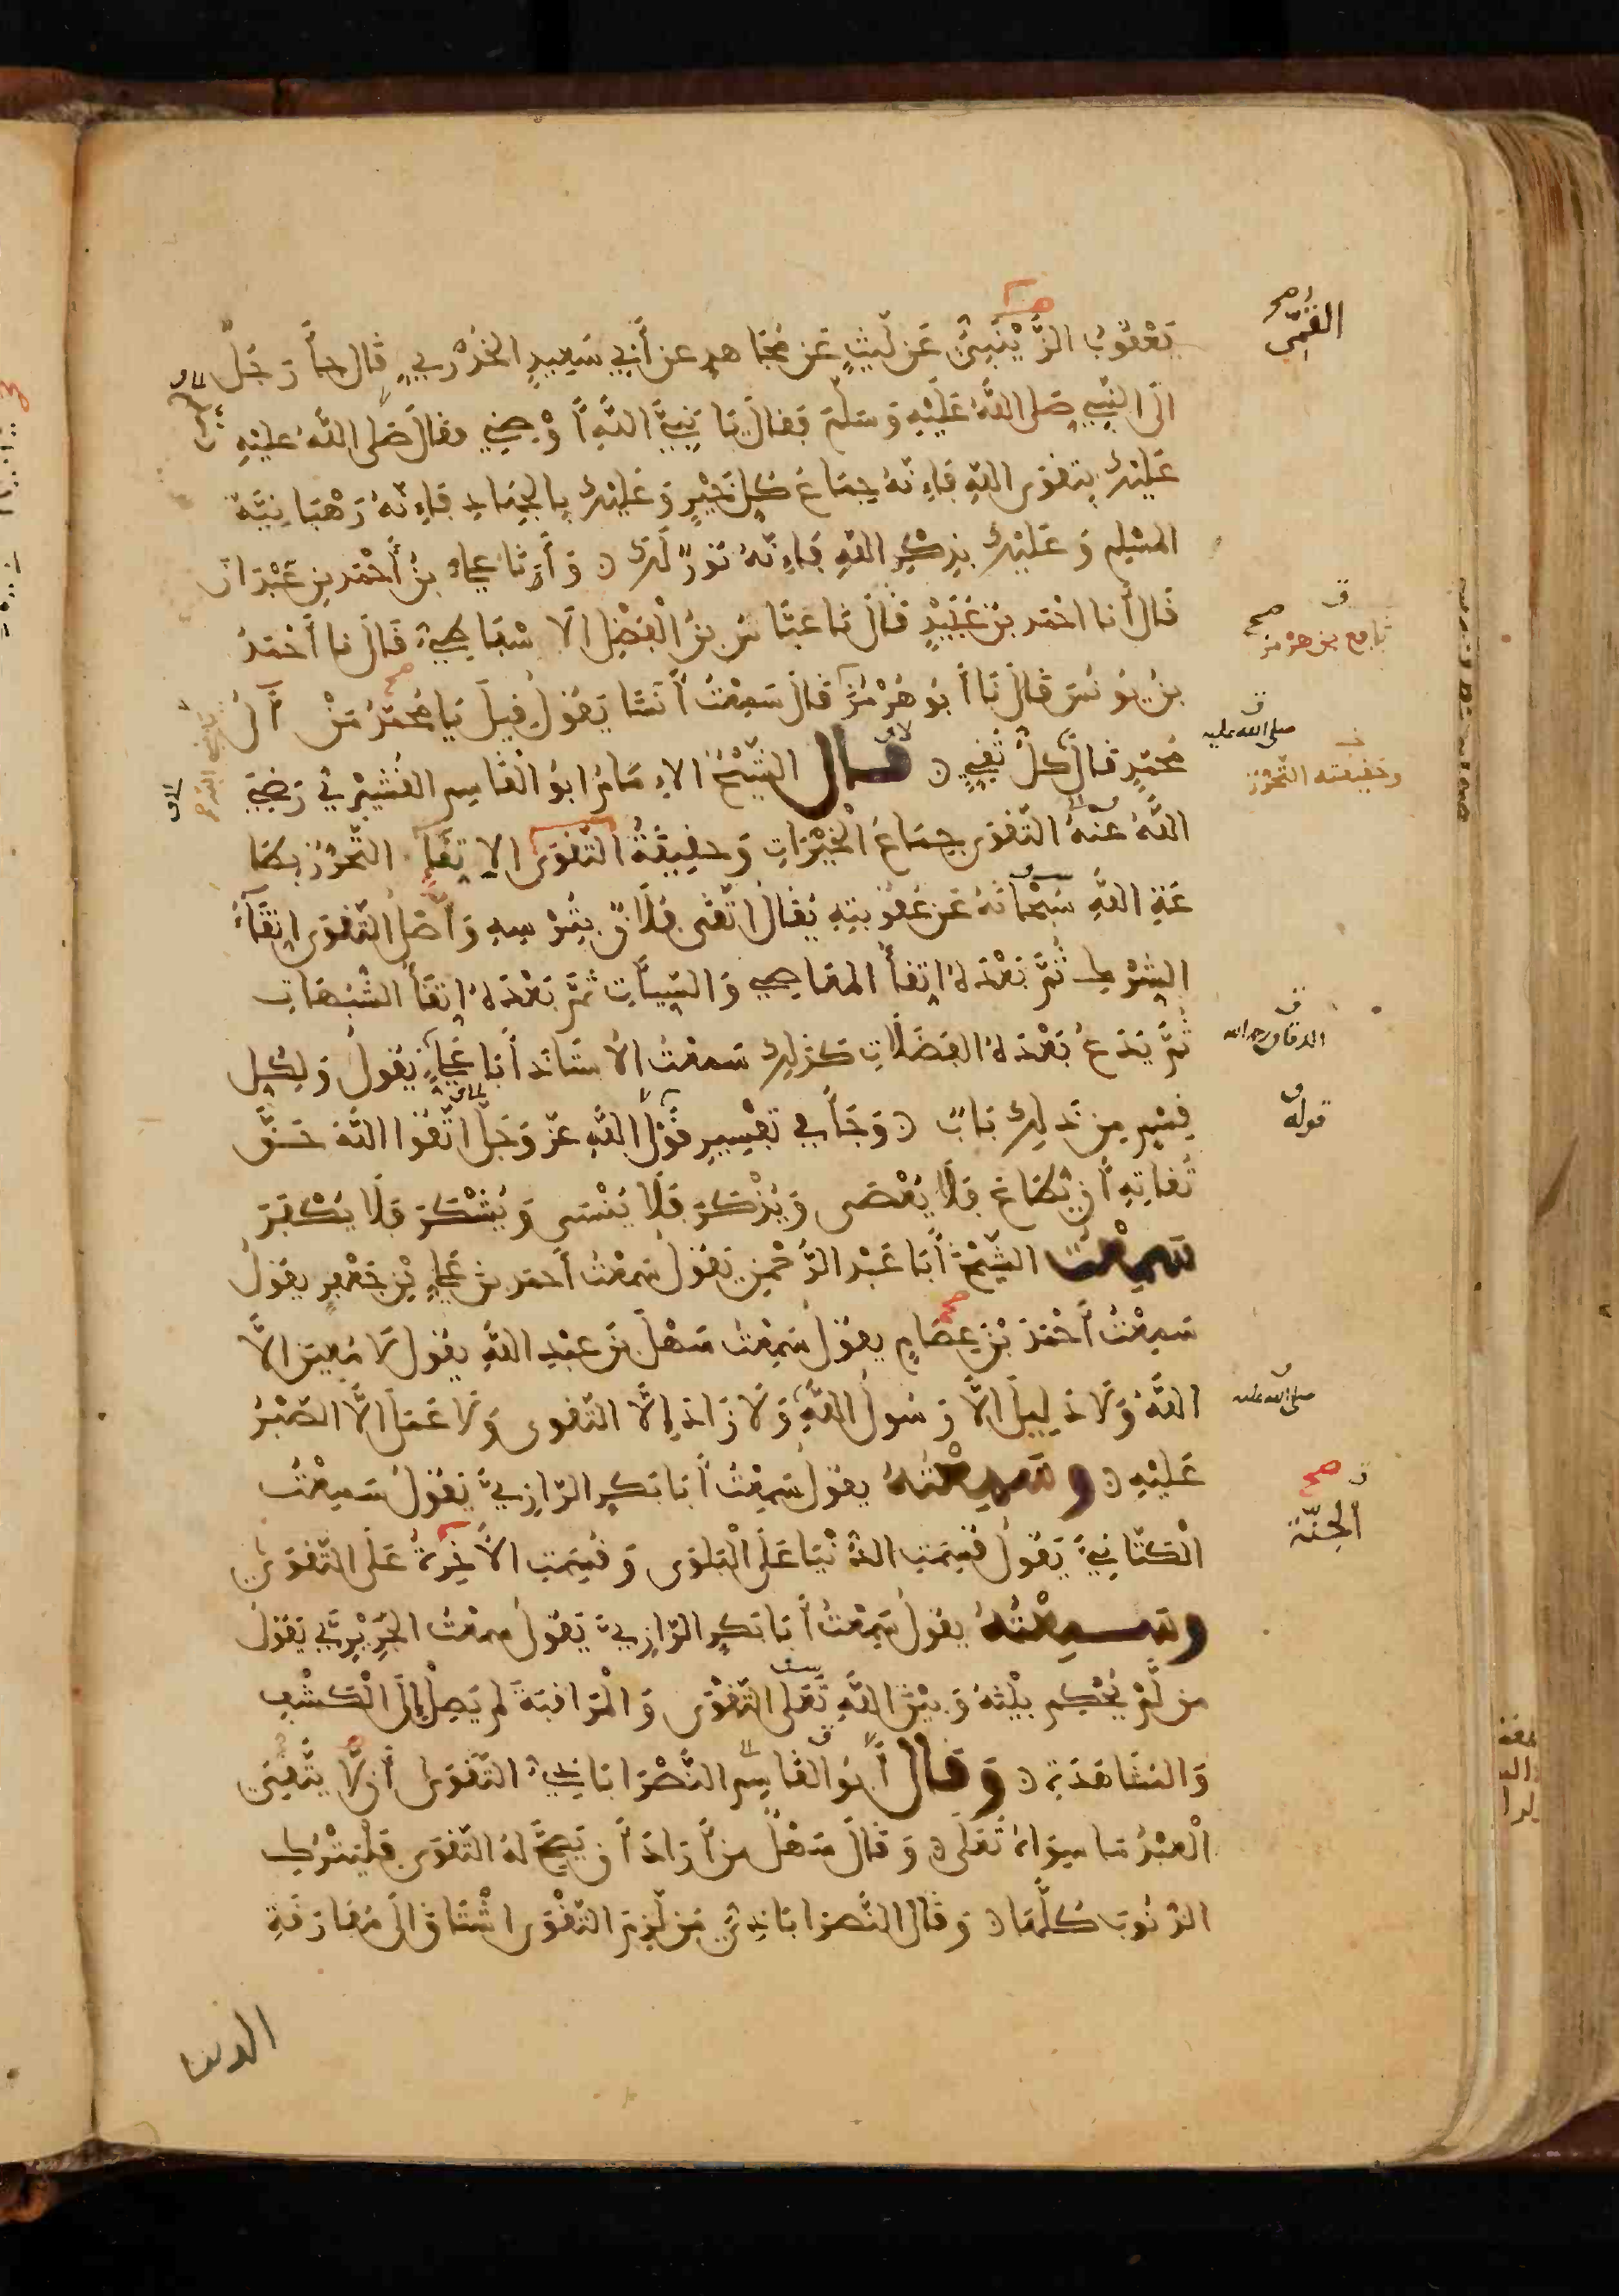 القمّى صح
يَعْقوبُ الزَّيْنَبِىُّ عَن لَيْثٍ عَن مُجَاهدٍ عن أَبِي سَعِيدٍ الخُدْرِيِّ قَال جَأَ رَجُلٌ
الَى النَّبِيِّ صَلى اللهُ عَلَيْهِ وَسَلَّمَ فَقالَ يَا نَبِيَّ اللهِ أَوْصِنِي فقالَ صَلى اللهُ عليْهِ
عَلَيْكَ بِتَقوَى اللهِ فَإِنَّهُ جِمَاعُ كُلِّ خَيْرٍ وَعَلَيْكَ بِالجِهَادِ فَإِنَّهُ رَهْبَانِيَّةُ
المُسْلِمِ وَعَلَيْكَ بِذِكْرِ اللهِ فَإِنَّهُ نُورٌ لَكَ ۞ وَأَرنَا عَلِيُّ بنُ أَحْمَد بنِ عَبْدَانَ
قَالَ أَنا احْمَد بنُ عُبَيْدٍ قَالَ نا عَبَّاسُ بنُ الْفَضْلِ الاسْفَاطِيُّ قَالَ نا أَحْمَدُ
نافع بن هرمز صح
بنُ يُونُسَ قَالَ نَا أَبُو هُرْمُزَ قَالَ سَمِعْتُ أَنَسًا يَقُولُ قِيلَ يَا مُحَمَّدُ مَنْ آلُ
صلى الله عليه
مُحَمَّدٍ قالَ كُلُّ تَقِيٍّ ۞ قَالَ الشَّيْخُ الإِمَامُ ابوُ الْقَاسِمِ القُشَيْرِيُّ رَضِيَ
وحَقيقته التَّحَرُّز
اللهُ عَنْهُ التَّقوَى جِمَاعُ الْخَيْرَاتِ وَحَقِيقَةُ التَّقوَى الاِتِّقَا التَّحَرُّزُ بِطَا
عَةِ اللهِ سُبْحَانَهُ عَن عُقوبَتِهِ يُقَالُ اتَّقَى فُلَانٌ بِتُرْسِهِ وَأَصْلُ التَّقوَى اتِّقَآءُ
الشِّرْكِ ثُمَّ بَعْدَهُ اتِّقَأُ المَعَاصِي وَالسَّيِّئَاتِ ثمَّ بَعْدَهُ اتِّقَأُ الشُّبُهَاتِ
الدقاق رحمه الله
ثُمَّ يَدَعُ بَعْدَهُ الْفَضَلَاتِ كَذَلِكَ سَمِعْتُ الأُسْتَاذَ أَبَا عَلِيٍّ يَقولُ وَلِكُلِّ
قوله
قِسْمٍ مِن ذَلِكَ بَابٌ ۞ وَجَأَ فِي تَفْسِيرِ قَوْلِ اللهِ عزّ وَجَلَّ اتَّقوا اللهَ حَقَّ
تُقَاتِهِ أَن يُطَاعَ فَلا يُعْصَى وَيُذْكَرَ فَلَا يُنْسَى وَيُشْكَرَ فَلَا يُكْفَرَ
سَمِعْتُ الشَّيْخَ أَبَا عَبْد الرَّحْمَنِ يَقولُ سَمِعْتُ أَحمَد بنَ عَلِيِّ بْنِ جَعْفَرٍ يقولُ
سَمِعْتُ أَحْمَدَ بْنَ عِصَامٍ يقولُ سَمِعْتُ سَهْلَ بنَ عَبْدِ اللهِ يقول لَا مُعِينَ الَّا
اللهُ وَلَا دَلِيلَ الَّا رَسُولُ اللهِ وَلَا زَادَ إِلَّا التَّقوى وَلَا عَمَلَ الَّا الصَّبْرُ
صلى الله عليه
عَلَيْهِ ۞ وسَمِعْتُهُ يقولُ سَمِعْتُ أَبَا بَكرٍ الرَّازِيَّ يَقولُ سَمِعْتُ
الجنّة صح
الْكَتَّانِيَّ يَقولُ قُسِمَتِ الدُّنْيَا عَلَى الْبَلْوَى وَقُسِمَتِ الآخِرَةُ عَلَى التَّقوَى
وسَمِعْتُهُ يقولُ سَمِعْتُ أَبَا بَكرٍ الرَّازِيَّ يَقولُ سمعْتُ الجُرَيْرِيَّ يَقولُ
مَن لَمْ يُحْكِم بَيْنَهُ وَبَيْنَ اللهِ تَعَلى التَّقْوَى وَالْمُرَاقبَةَ لم يَصِلْ إِلَى الْكَشْفِ
وَالمُشَاهَدَةِ ۞ وَقَالَ أَبُو الْقَاسِمِ النَّصْرَابَاذِيُّ التَّقوَى أَن لَّا يَتَّقِيَ
الْعَبْدُ مَا سِوَاهُ تَعَلَى ۞ وَقَالَ سَهْلٌ مَن أَرَادَ أَن تَصِحَّ لهُ التَّقوَى فَلْيَتْرُكِ
الذُّنُوبَ كُلَّهَا ۞ وَقَالَ النَّصرَابَاذِيُّ مَن لَزِمَ التَّقْوَى اشْتَاقَ الَى مُفَارَقَةِ
الدنيا